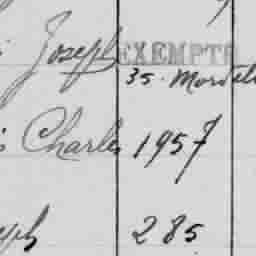 Joseph EXEMPT
35. Mord
Charles 1957
eph 285